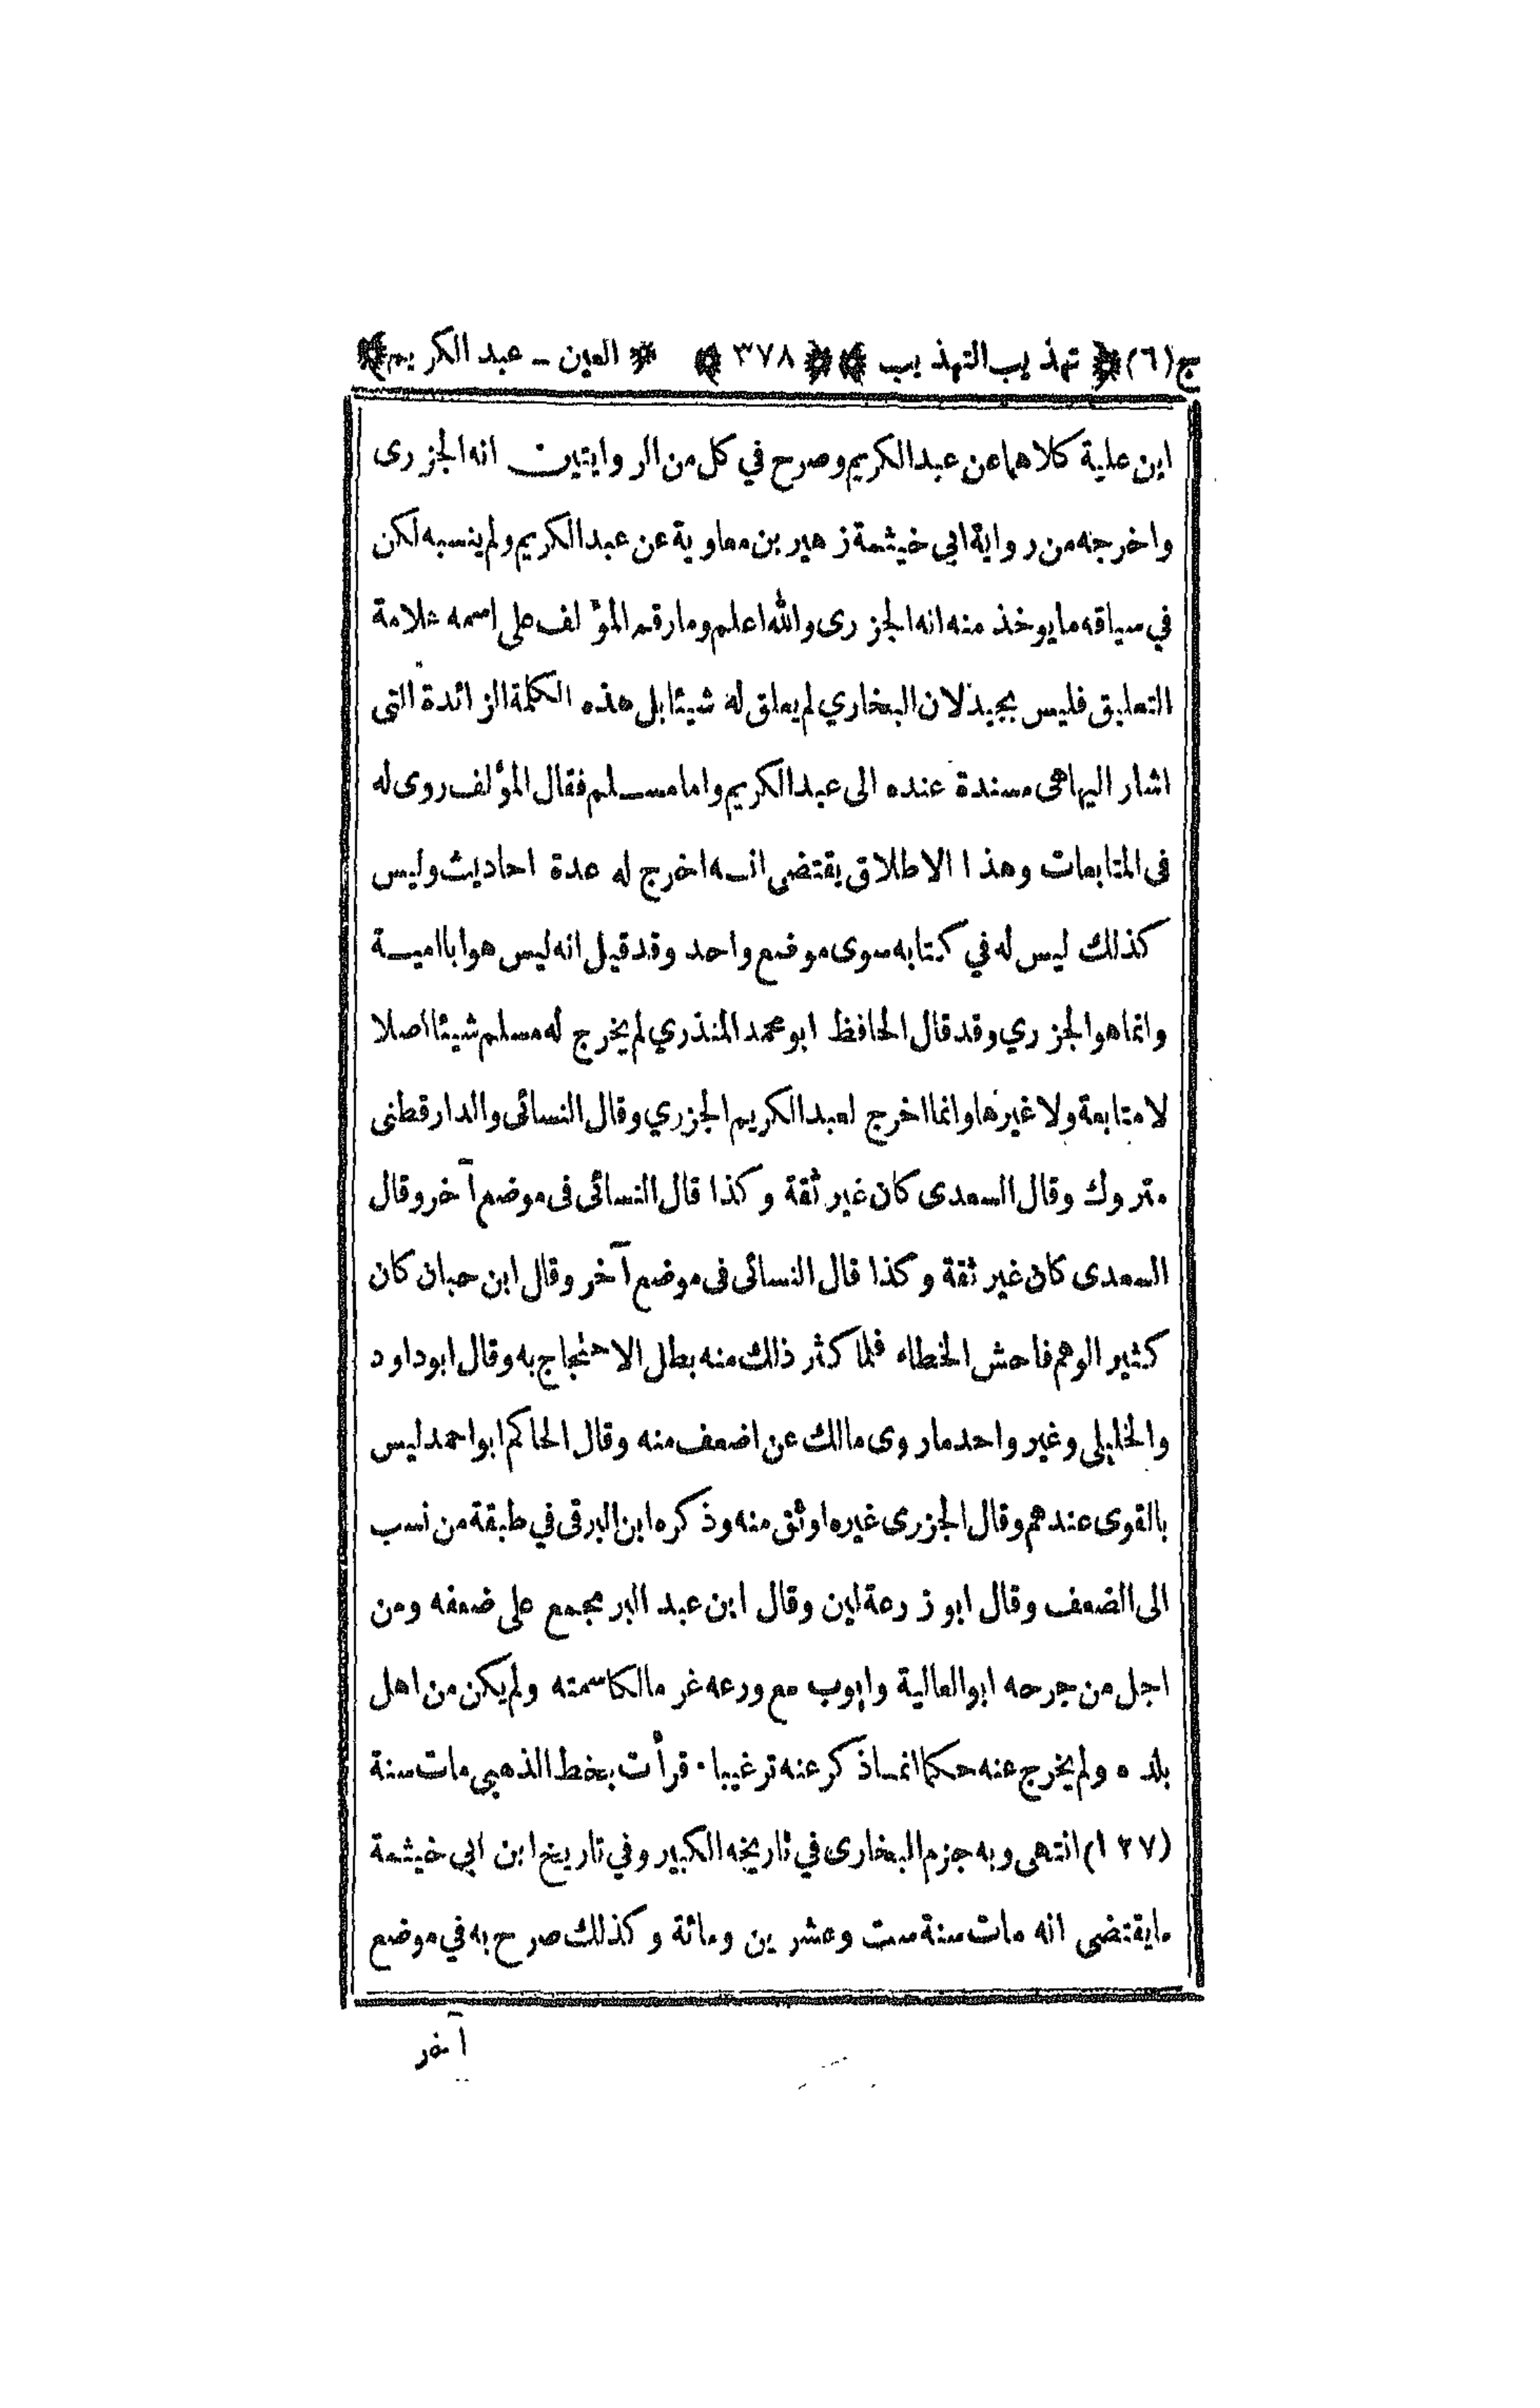 ج(٦) تهذيب التهذيب ٣٧٨ العين ـ عبد الكريم
ابن علية كلاهما عن عبد الكريم وصرح في كل من الروايتين انه الجزرى
واخرجه من رواية ابي خيثمة زهير بن معاوية عن عبد الكريم ولم ينسبه لكن
في سياقه ما يوخذ منه انه الجزرى والله اعلم وما رقم المؤلف على اسمه علامة
التعليق فليس بجيد لان البخاري لم يعلق له شيئا بل هذه الكلمة الزائدة التى
اشار اليها هى مسندة عنده الى عبد الكريم واما مسلم فقال المؤلف روى له
فى المتابعات وهذا الاطلاق يقتضى انه اخرج له عدة احاديث وليس
كذلك ليس له في كتابه سوى موضع واحد وقد قيل انه ليس هو ابا امية
وانما هو الجزري وقد قال الحافظ ابو محمد المنذري لم يخرج له مسلم شيئا اصلا
لا متابعة ولا غيرها وانما اخرج لعبد الكريم الجزري وقال النسائى والدارقطنى
متروك وقال السعدى كان غير ثقة وكذا قال النسائى فى موضع آخر وقال
السعدى كان غير ثقة وكذا قال النسائى فى موضع آخر وقال ابن حبان كان
كثير الوهم فاحش الخطاء فلما كثر ذلك منه بطل الاحتجاج به وقال ابو داود
والخليلى وغير واحد ما روى مالك عن اضعف منه وقال الحاكم ابو احمد ليس
بالقوى عندهم وقال الجزرى غيره اوثق منه وذكره ابن البرقى في طبقة من نسب
الى الضعف وقال ابو زرعة لين وقال ابن عبد البر مجمع على ضعفه ومن
اجل من جرحه ابو العالية وايوب مع ورعه غر مالكا سمته ولم يكن من اهل
بلده ولم يخرج عنه حكما انما ذكر عنه ترغيبا · قرأت بخط الذهبى مات سنة
(١٢٧) انتهى وبه جزم البخارى في تاريخه الكبير وفي تاريخ ابن ابي خيثمة
ما يقتضى انه مات سنة ست وعشرين ومائة وكذلك صرح به في موضع
آخر